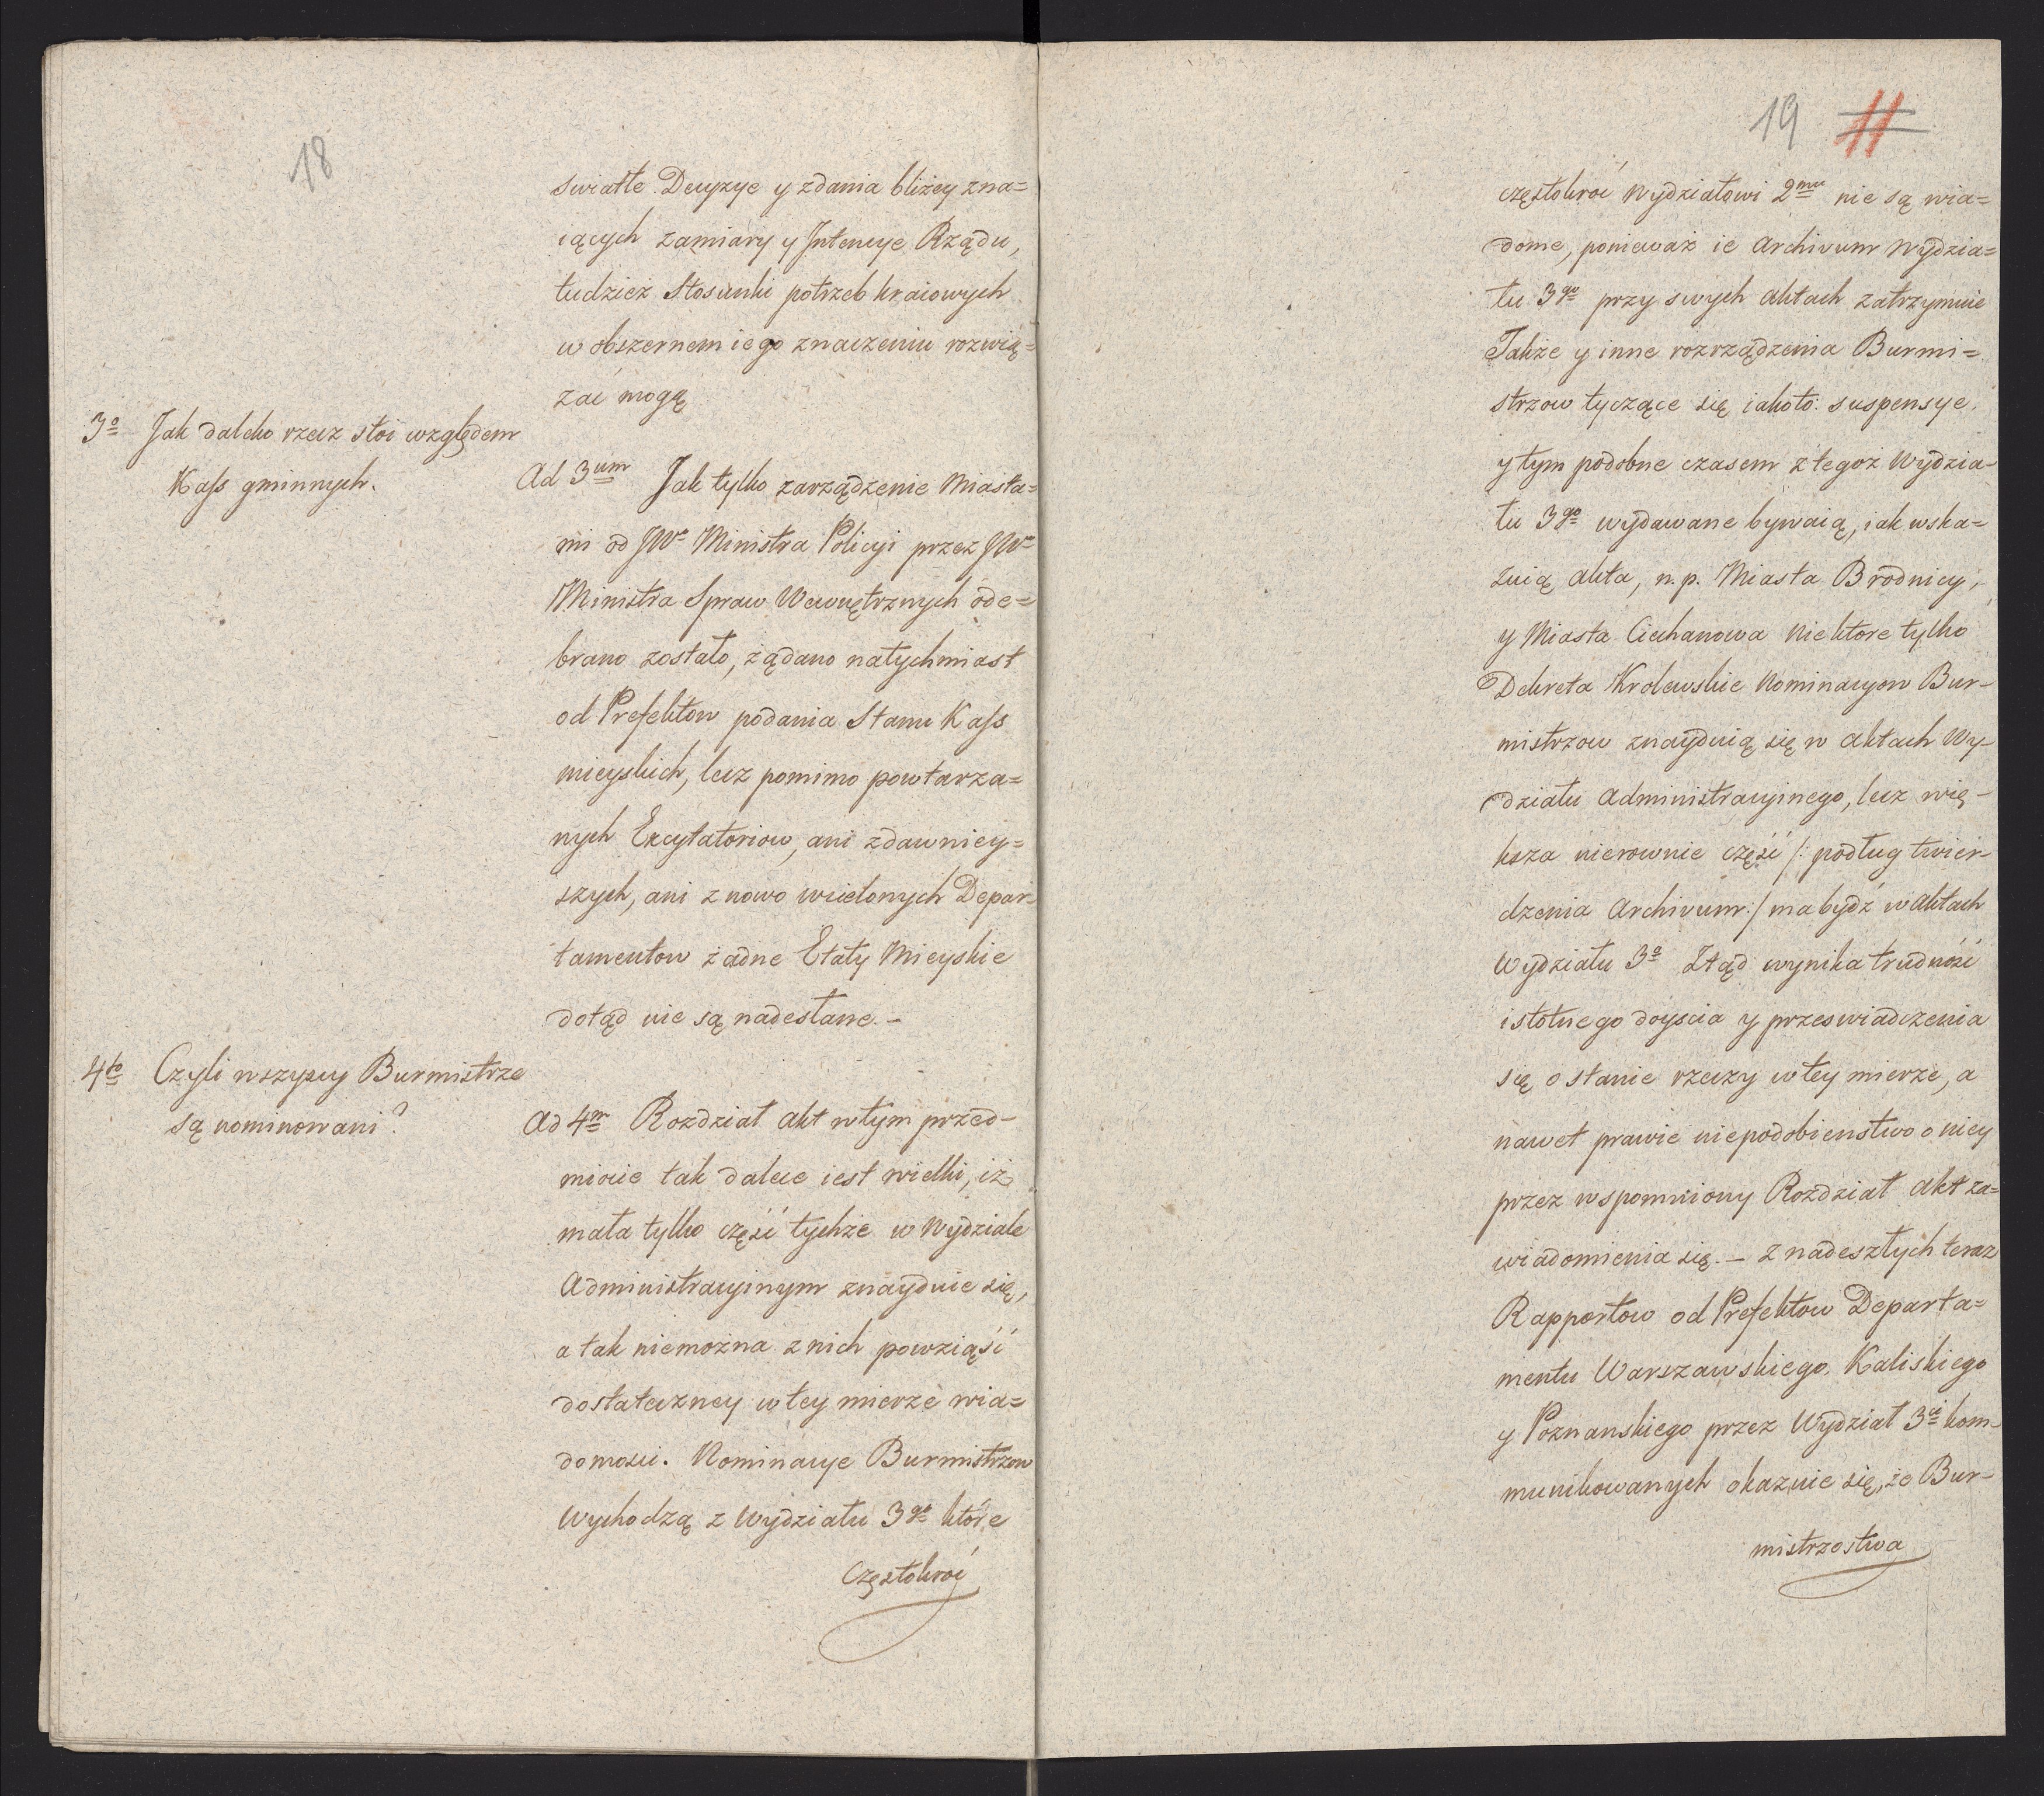 18
swiatłe Decyzye y zdania bliżey zna=
iących zamiary y Intencye Rządu,
tudzież Stosunki potrzeb kraiowych
w obszernem iego znaczeniu rozwią=
zać mogą
3o Jak daleko rzecz stoi względem
Kass gminnych.
Ad 3um Jak tylko zarządzenie Miasta=
mi od JWo Ministra Policyi przez JWo
Ministra Spraw Wewnętrznych ode=
brano zostało, żądano natychmiast
od Prefektow podania Stanu Kass
mieyskich, lecz pomimo powtarza=
nych Excytatoriow, ani zdawniey=
szych, ani z nowo wcielonych Depar=
tamentow żadne Etaty Mieyskie
dotąd nie są nadesłane.-
4to Czyli wszyscy Burmistrze
są nominowani?
Ad 4m Rozdział Akt wtym przed-
miocie tak dalece iest wielki, iż
mała tylko część tychże w Wydziale
Administracyinym znayduie się,
a tak niemożna z nich powziąść
dostateczney wtey mierze wia=
domości. Nominacye Burmistrzow
Wychodzą z Wydziału 3go które
Częstokroć
19 11
częstokroć Wydziałowi 2mu nie są wia=
dome, ponieważ ie Archivum Wydzia=
łu 3go przy swych Aktach zatrzymuie
Także y inne rozrządzenia Burmi=
strzow tyczące się iakoto: suspensye,
y tym podobne czasem z tegoż Wydzia-
łu 3go wydawane bywaią, iak wska=
zuią Akta, n.p. Miasta Brodnicy,
y Miasta Ciechanowa Niektore tylko
Dekreta Krolewskie Nominacyow Bur-
mistrzow znayduią się w Aktach Wy-
działu Administracyinego, lecz wię-
ksza nierownie część /: podług twier-
dzenia Archivum:/ ma bydź w Aktach
Wydziału 3o Ztąd wynika trudność
istotnego doyscia y przeswiadczenia
się o stanie rzeczy wtey mierze, a
nawet prawie niepodobienstwo o niey
przez wspomniony Rozdział Akt za=
wiadomienia się.- Z nadeszłych teraz
Rapportow od Prefektow Departa=
mentu Warszawskiego, Kaliskiego
y Poznanskiego przez Wydział 3ci kom-
munikowanych okazuie się, że Bur-
mistrzostwa